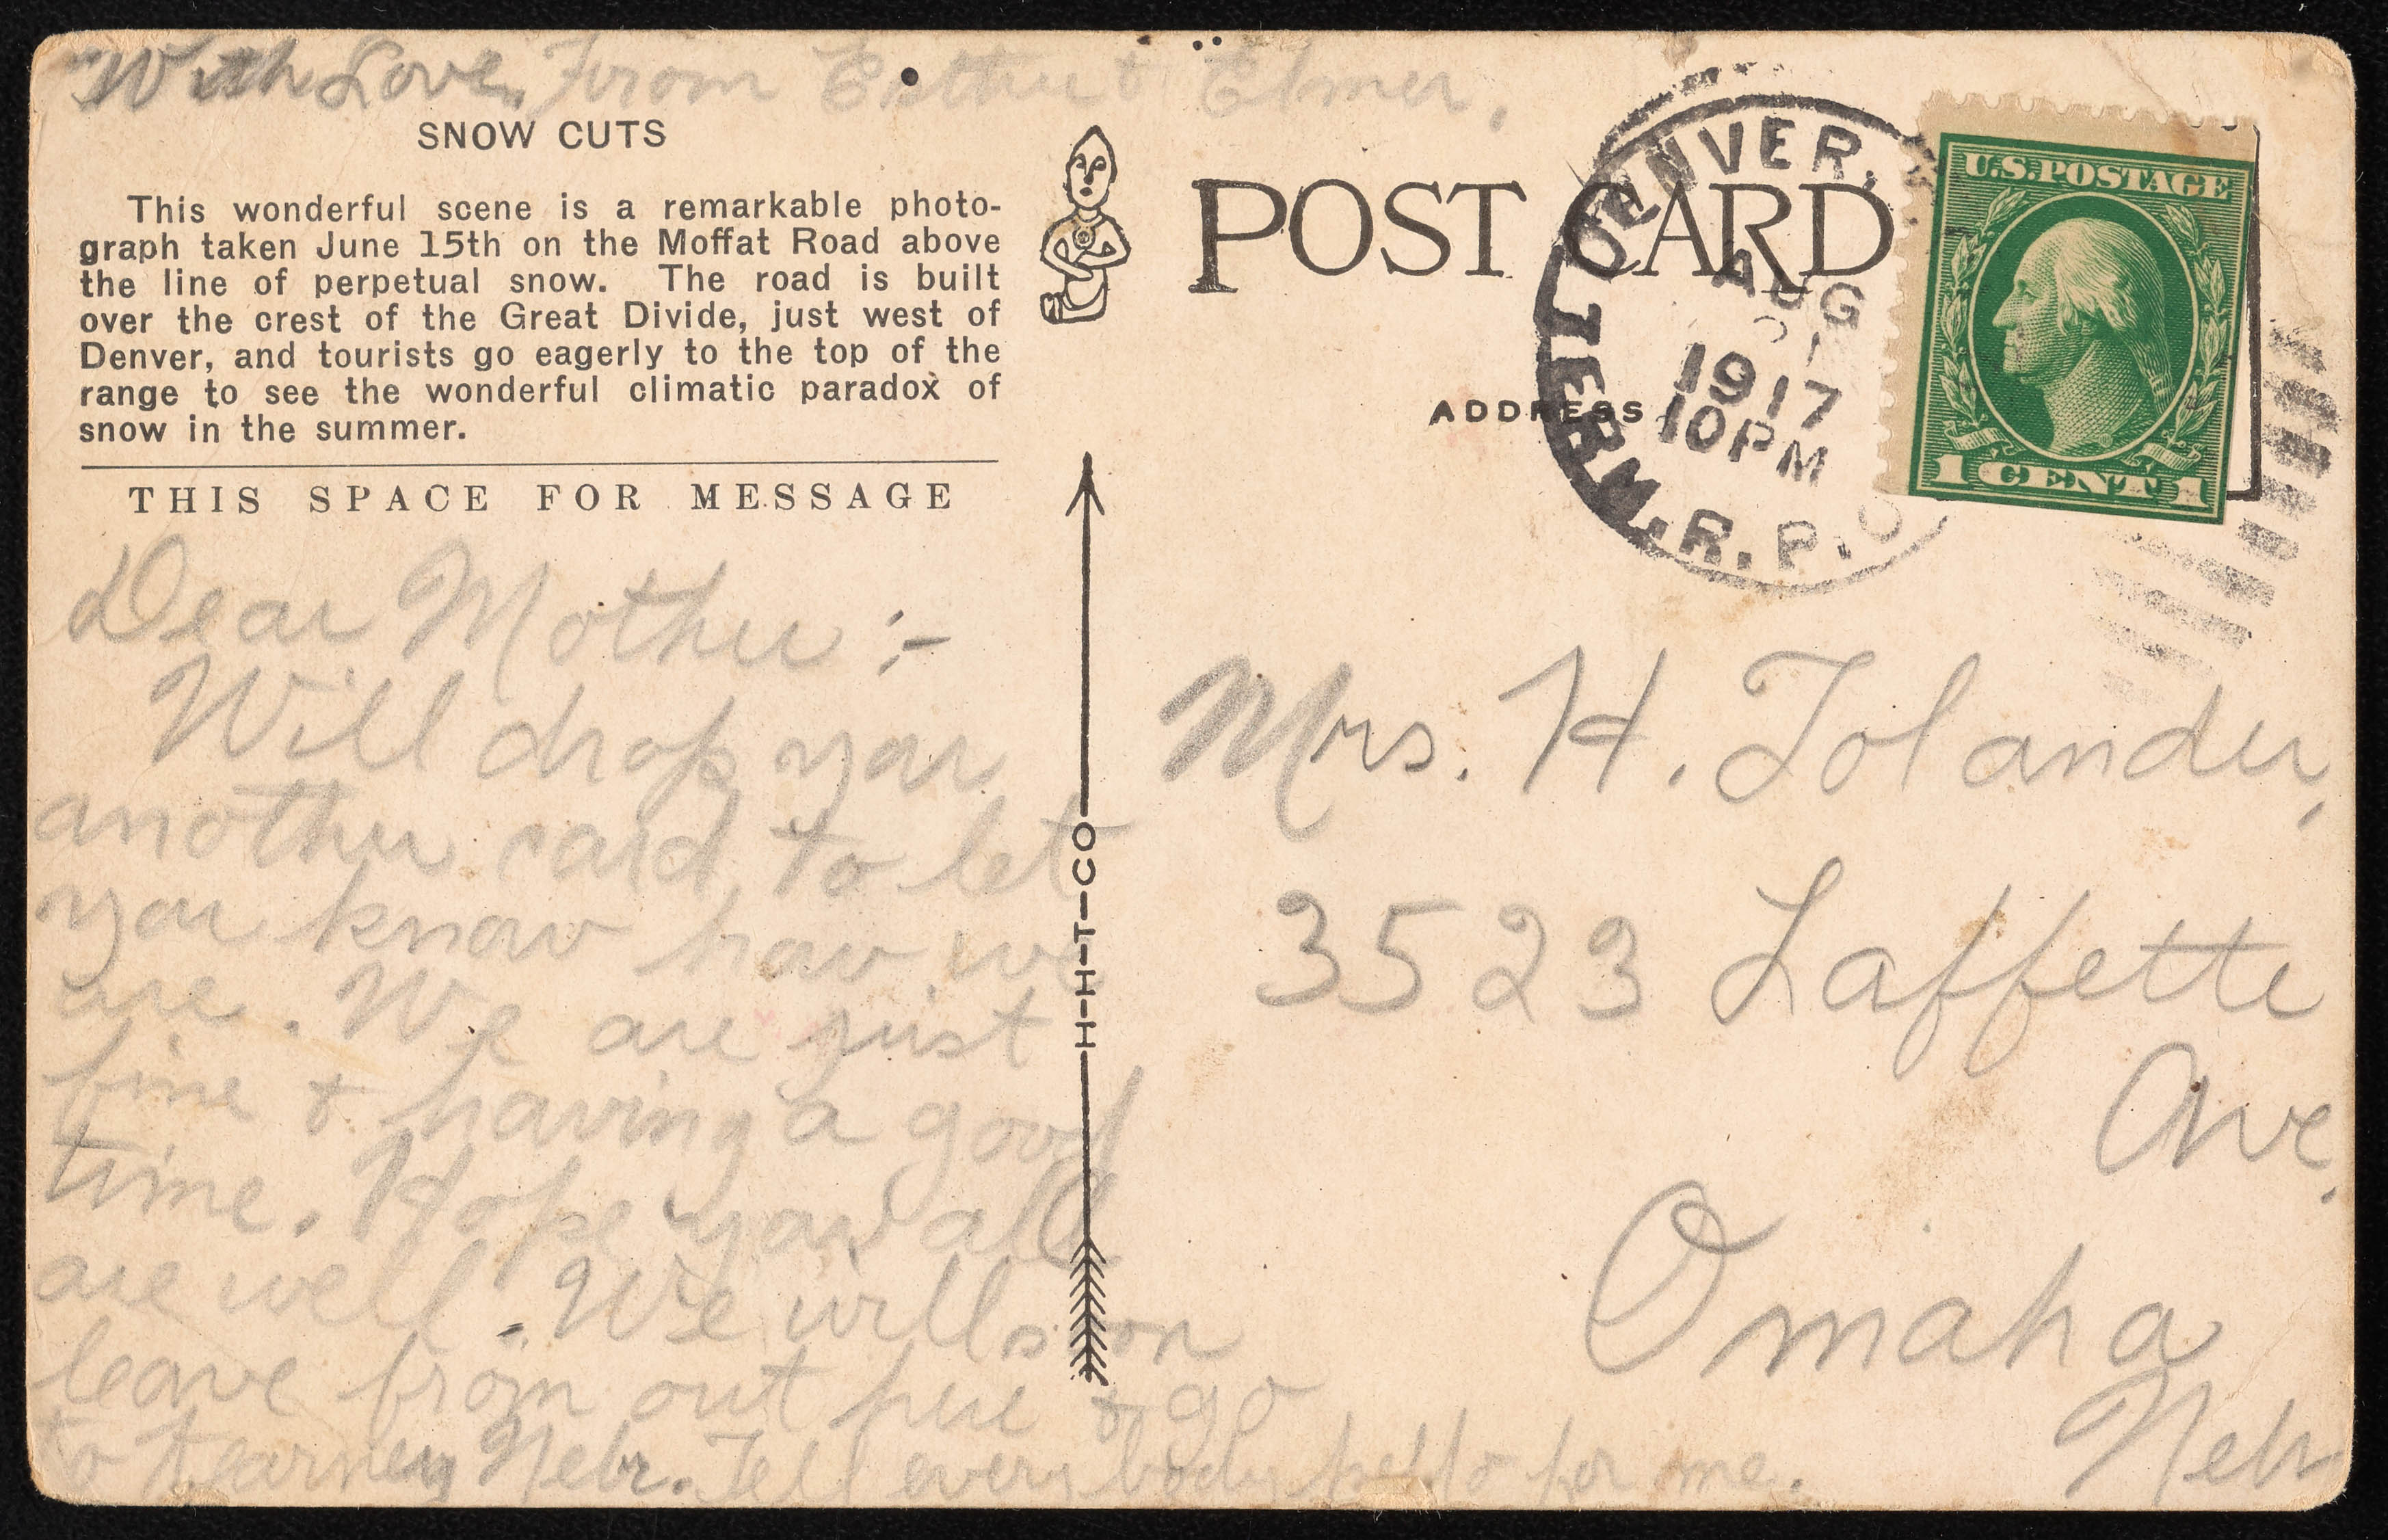 With Love, From Esther & Elmer,
SNOW CUTS
This wonderful scene is a remarkable photo-
graph taken June 15th on the Moffat Road above
the line of perpetual snow. The road is built
over the crest of the Great Divide, just west of
Denver, and tourists go eagerly to the top of the
range to see the wonderful climatic paradox of
snow in the summer.
THIS SPACE FOR MESSAGE
Dear Mother :-
Will drop you
another card, to let
you know how we
are. We are just
fine & having a good
time. Hope you all
are well. We will soon
leave from out here & go
to Kearney Nebr. Tell every body hello for me.
H-H-T-CO
POST CARD
ADDRESS
DENVER,
AUG
1917
10PM
TERM. R. P. O
U.S. POSTAGE
1 CENT 1
Mrs. H. Tolander,
3523 Laffette
Ave.
Omaha
Nebr